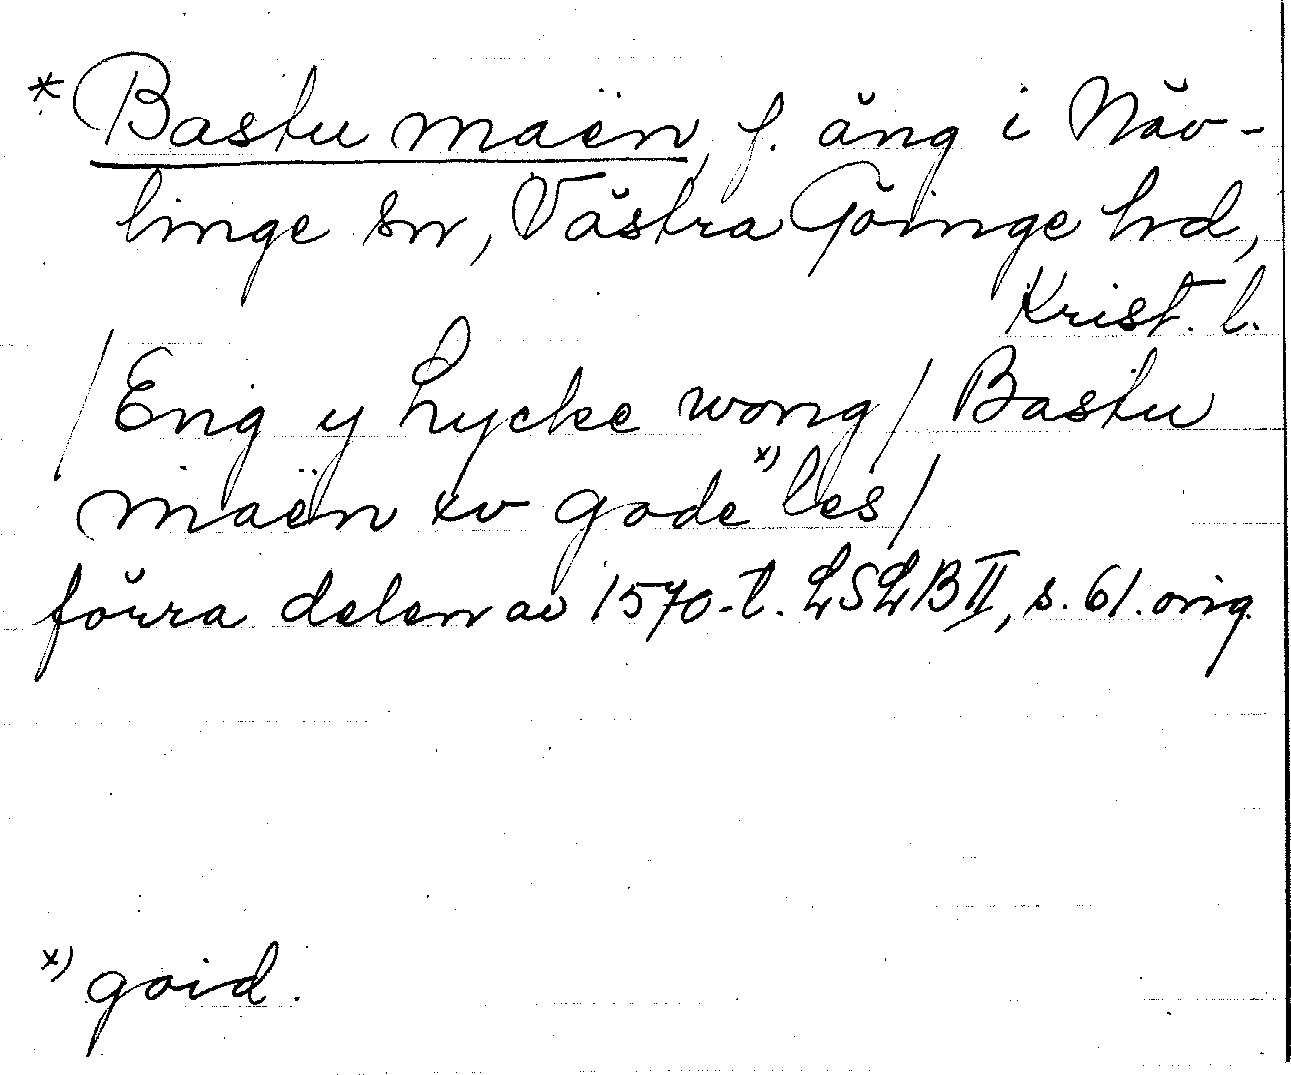 * Bastu maën, f. äng i Näv-
linge sn, Västra Göinge hd,
Krist. l.
/Eng y Lycke wong/ Bastu
maën xv gode x) les/
förra delen av 1570-t. LSLB II, s. 61. orig.
x) goid.